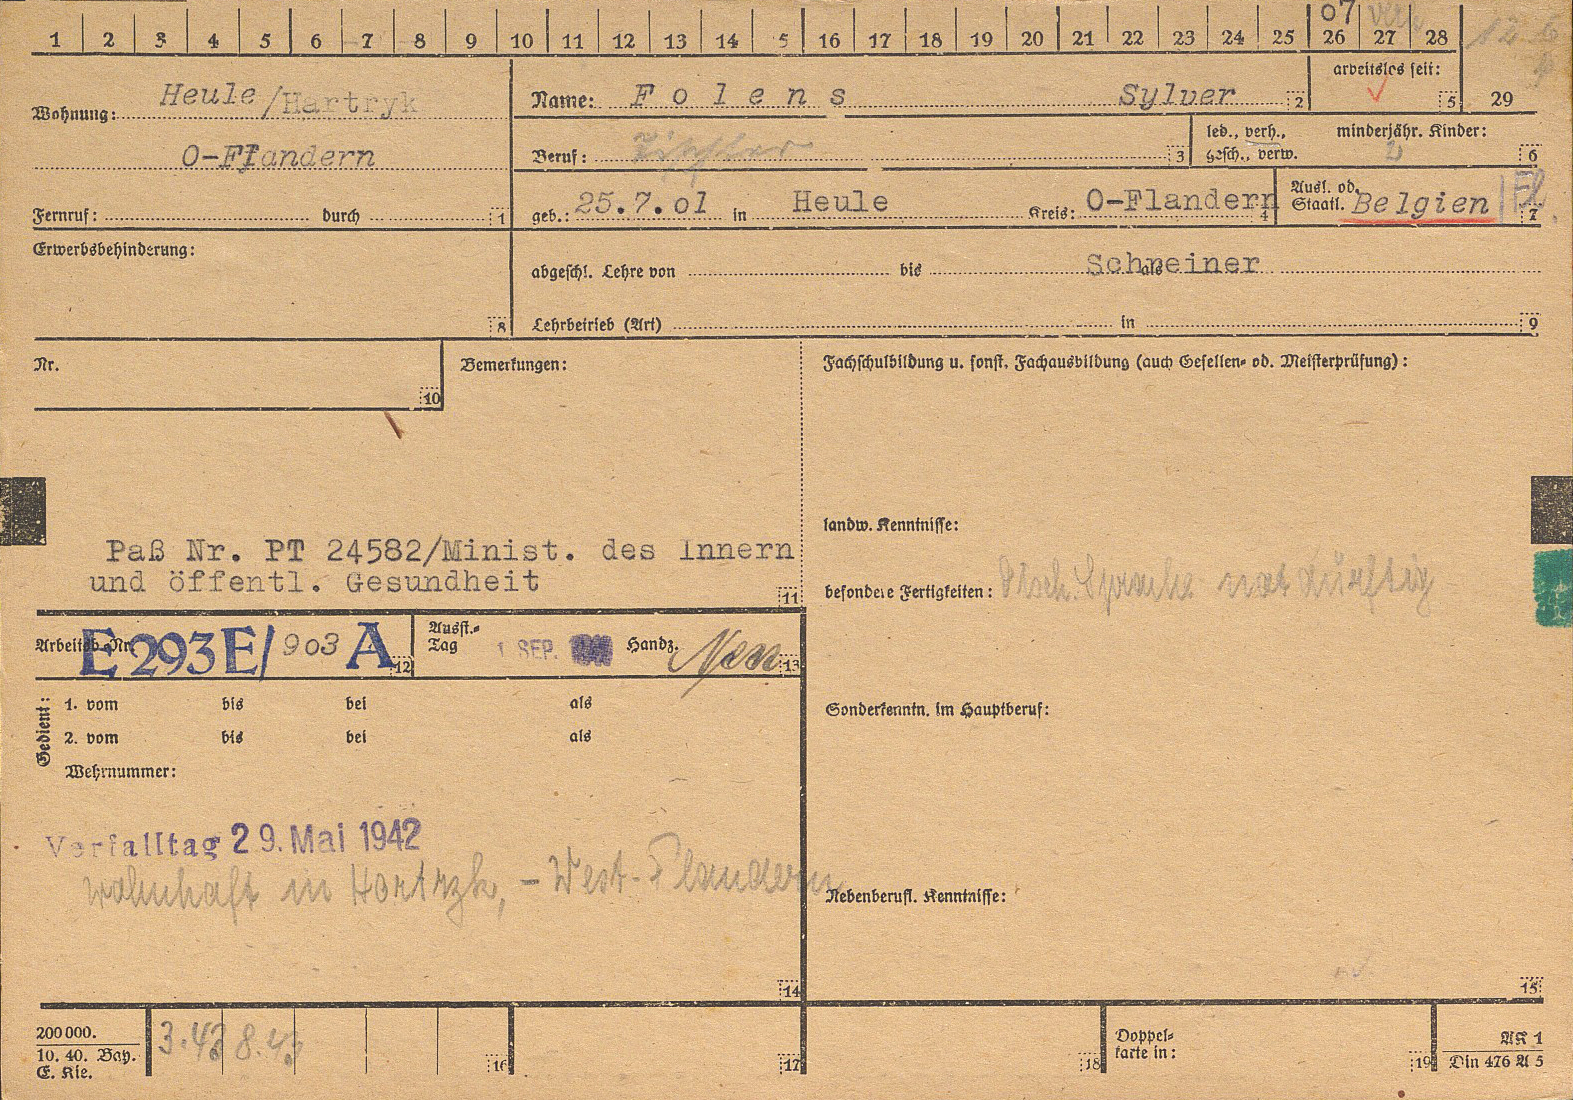 1 2 3 4 5 6 7 8 9 10 11 12 13 14 5 16 17 18 19 20 21 22 23 24 25 26 27 28
07 verh
12 6
Wohnung: Heule/Hartryk
O-Flandern
Fernruf: durch 1
Name: Folens Sylver 2
arbeitslos seit: 5
29
Beruf: Tischler 3
led., verh., gesch., verw.
minderjähr. Kinder: 2 6
geb.: 25.7.01 in Heule Kreis: O-Flandern 4
Ausl. od. Staatl. Belgien Fl. 7
Erwerbsbehinderung: 8
abgeschl. Lehre von bis als Schreiner
Lehrbetrieb (Art) in 9
Nr. 10
Bemerkungen:
Fachschulbildung u. sonst. Fachausbildung (auch Gesellen- od. Meisterprüfung):
Paß Nr. PT 24582/Minist. des Innern
und öffentl. Gesundheit 11
landw. Kenntnisse:
besondere Fertigkeiten: Dtsch. Sprache not dürftig
Arbeitsb.-Nr. E 293 E/903 A 12
Ausst.-Tag 1 SEP. Handz. 13
Gedient:
1. vom bis bei als
2. vom bis bei als
Wehrnummer:
Sonderkenntn. im Hauptberuf:
Verfalltag 29. Mai 1942
wohnhaft in Hortrzk, - West-Flandern
14
Nebenberufl. Kenntnisse:
15
200 000.
10. 40. Bay.
E. Kie.
3.43 8.43 16
17
18
Doppel-
karte in: 19
AK 1
Din 476 A 5